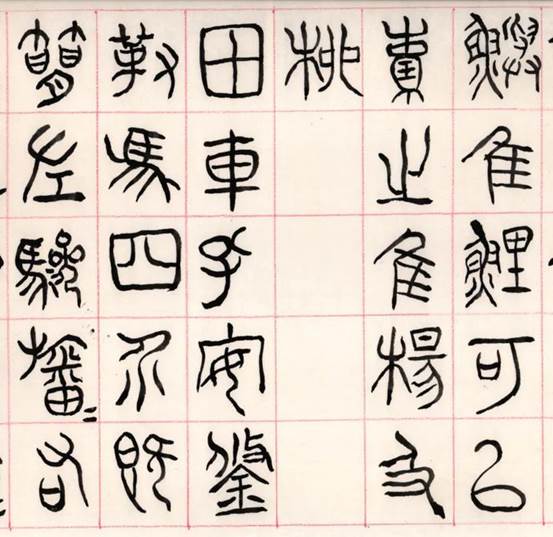 鱮隹鯉可㠯
橐之隹楊及
柳
田車孔安鋚
勒馬四介既
簡左驂旛=右